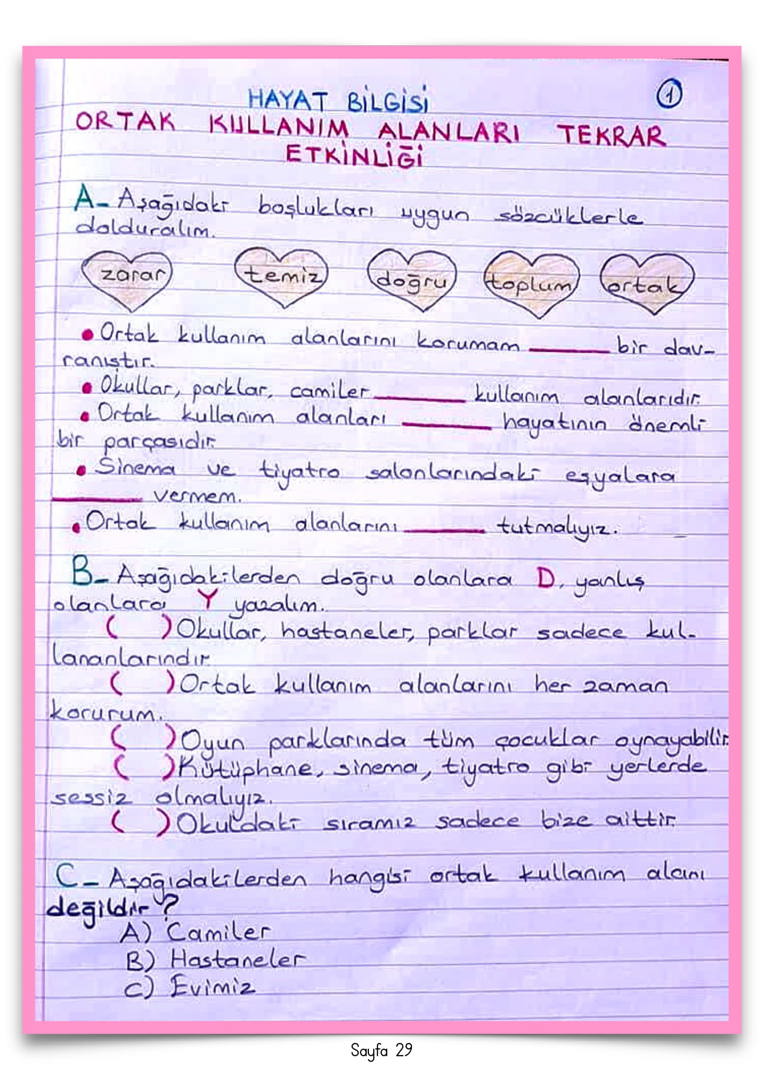 HAYAT BİLGİSİ
1
ORTAK KULLANIM ALANLARI TEKRAR
ETKİNLİĞİ
A- Aşağıdaki boşlukları uygun sözcüklerle
dolduralım.
zarar temiz doğru toplum ortak
• Ortak kullanım alanlarını korumam ______ bir dav-
ranıştır.
• Okullar, parklar, camiler ______ kullanım alanlarıdır.
• Ortak kullanım alanları ______ hayatının önemli
bir parçasıdır.
• Sinema ve tiyatro salonlarındaki eşyalara
______ vermem.
• Ortak kullanım alanlarını ______ tutmalıyız.
B- Aşağıdakilerden doğru olanlara D, yanlış
olanlara Y yazalım.
( ) Okullar, hastaneler, parklar sadece kul-
lananlarındır.
( ) Ortak kullanım alanlarını her zaman
korurum.
( ) Oyun parklarında tüm çocuklar oynayabilir.
( ) Kütüphane, sinema, tiyatro gibi yerlerde
sessiz olmalıyız.
( ) Okuldaki sıramız sadece bize aittir.
C- Aşağıdakilerden hangisi ortak kullanım alanı
değildir?
A) Camiler
B) Hastaneler
C) Evimiz
Sayfa 29